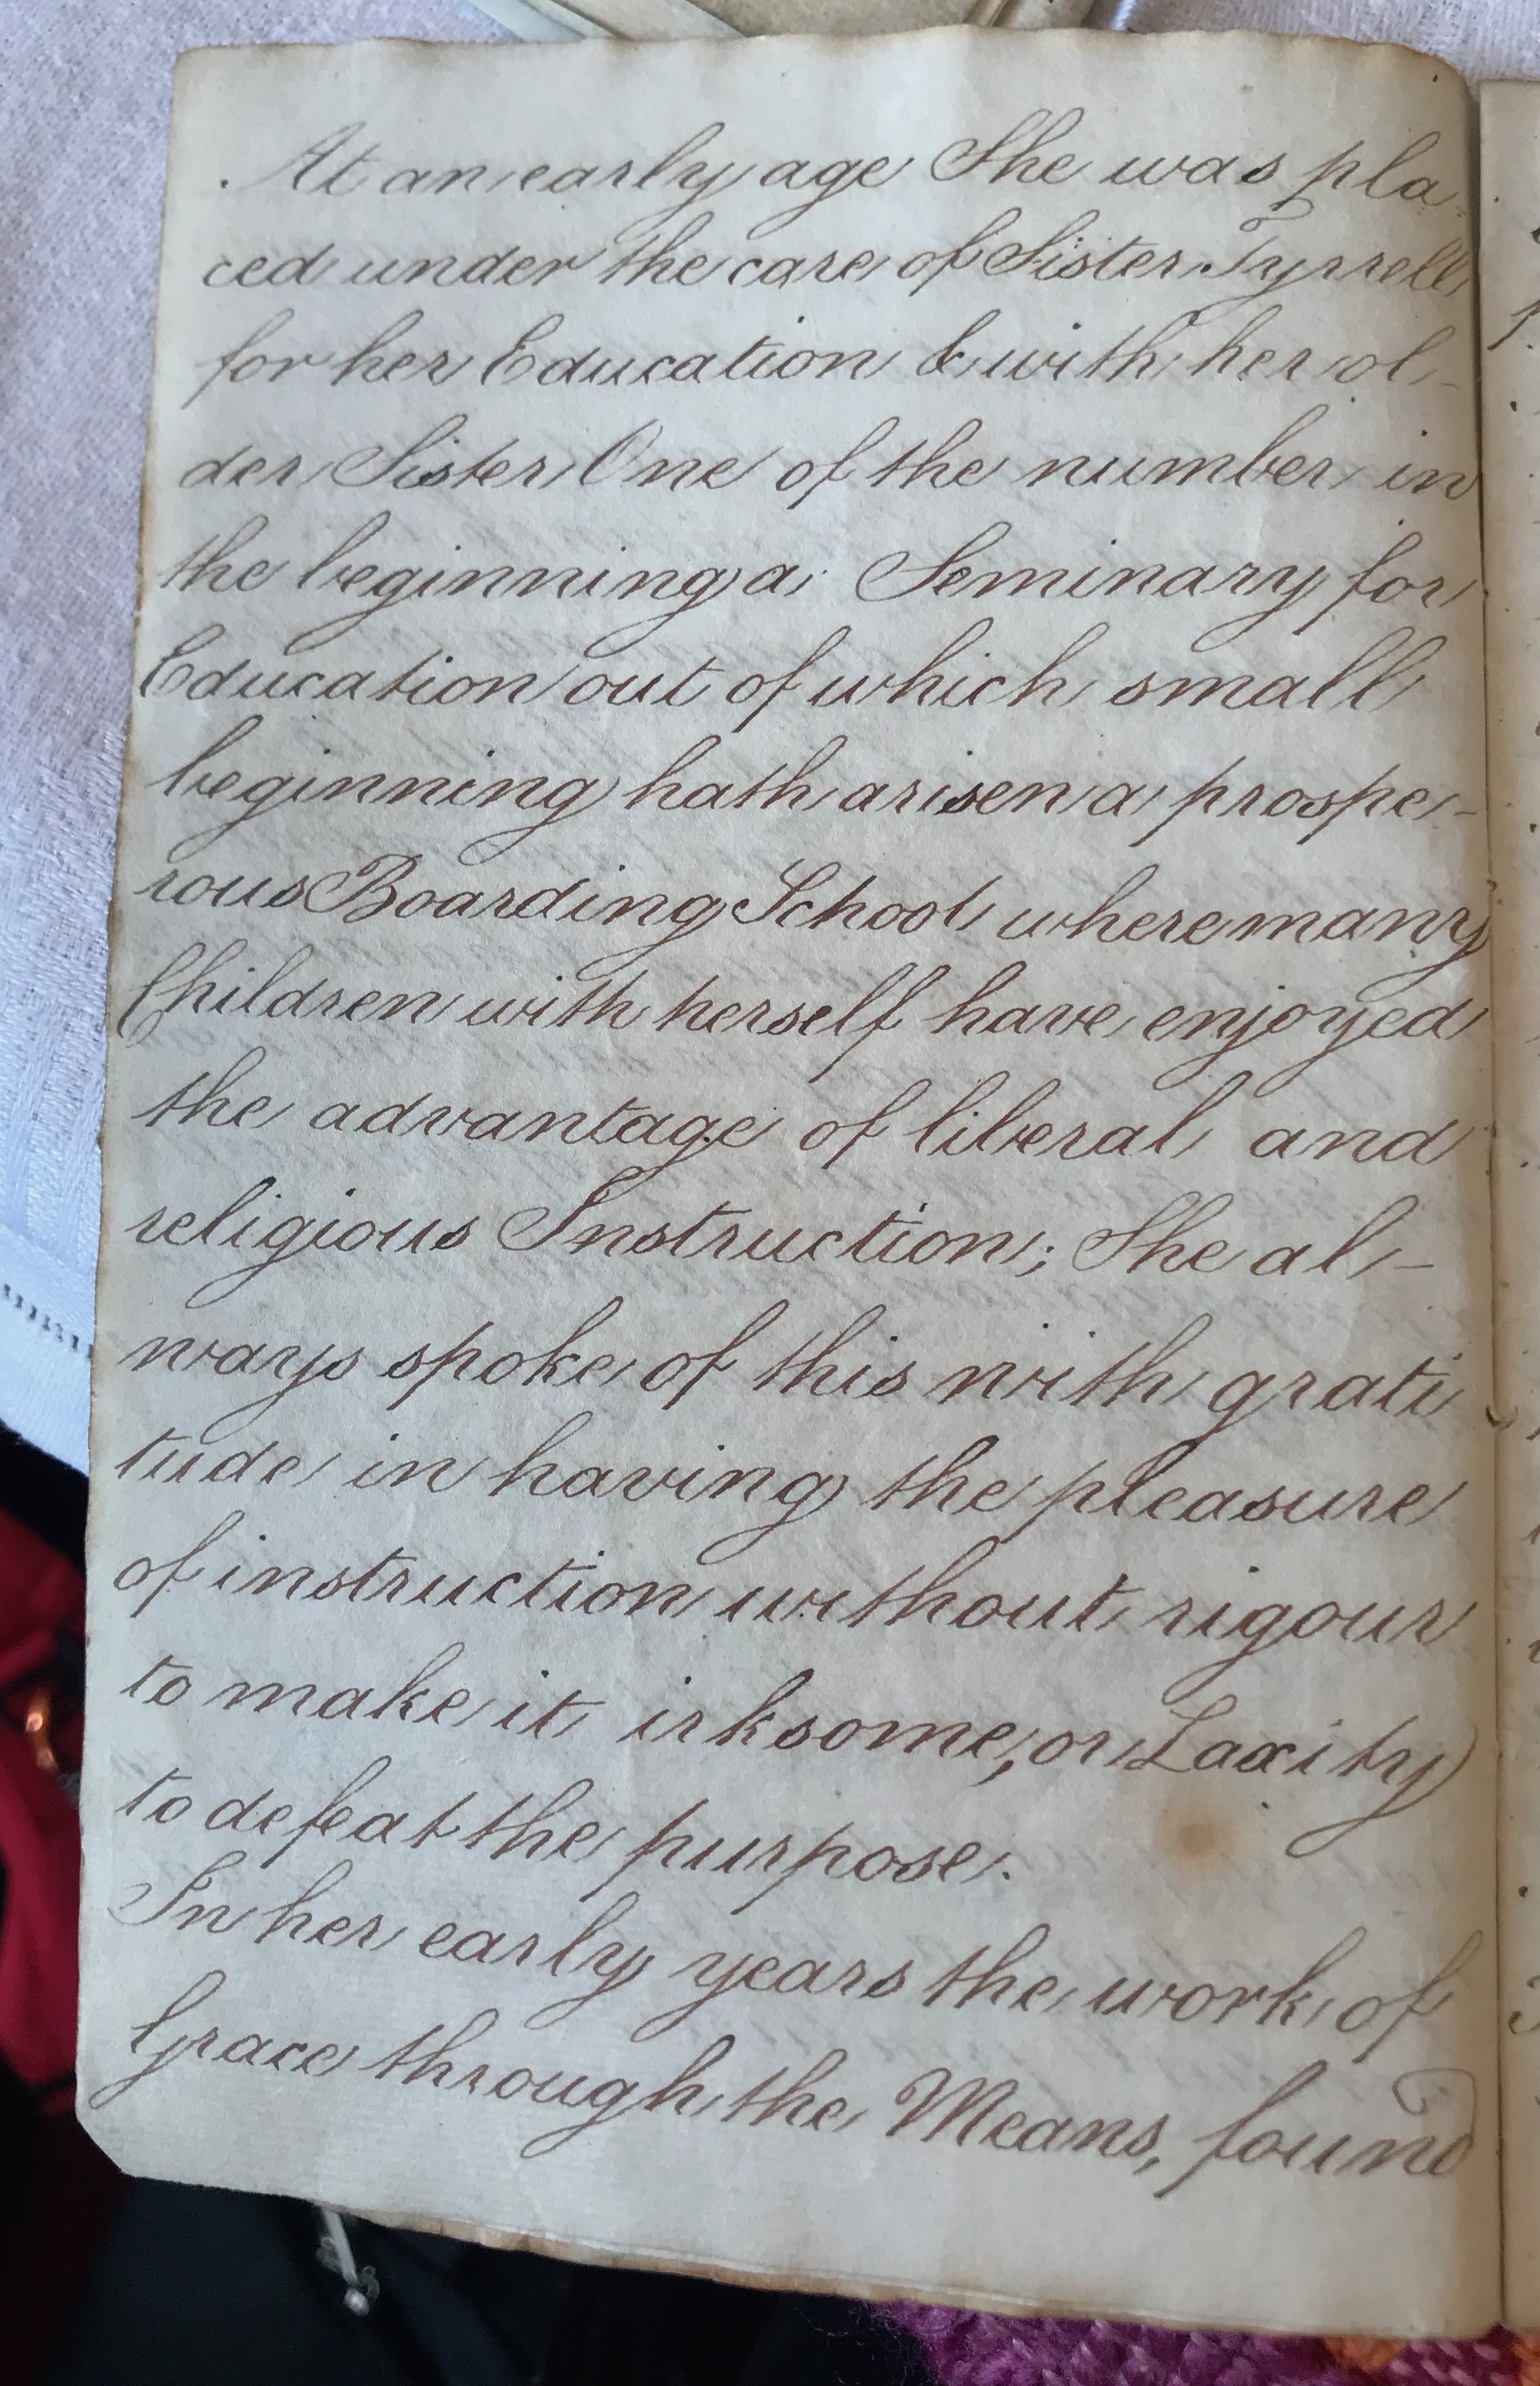 At an early age She was pla-
ced under the care of Sister Tyrrell
for her Education & with her ol-
der Sister One of the number in
the beginning a Seminary for
Education out of which small
beginning hath arisen a prospe-
rous Boarding School where many
Children with herself have enjoyed
the advantage of liberal and
religious Instruction; She al-
ways spoke of this with grati
tude in having the pleasure
of instruction without rigour
to make it irksome, or Laxity
to defeat the purpose.
In her early years the work of
Grace through the Means, found